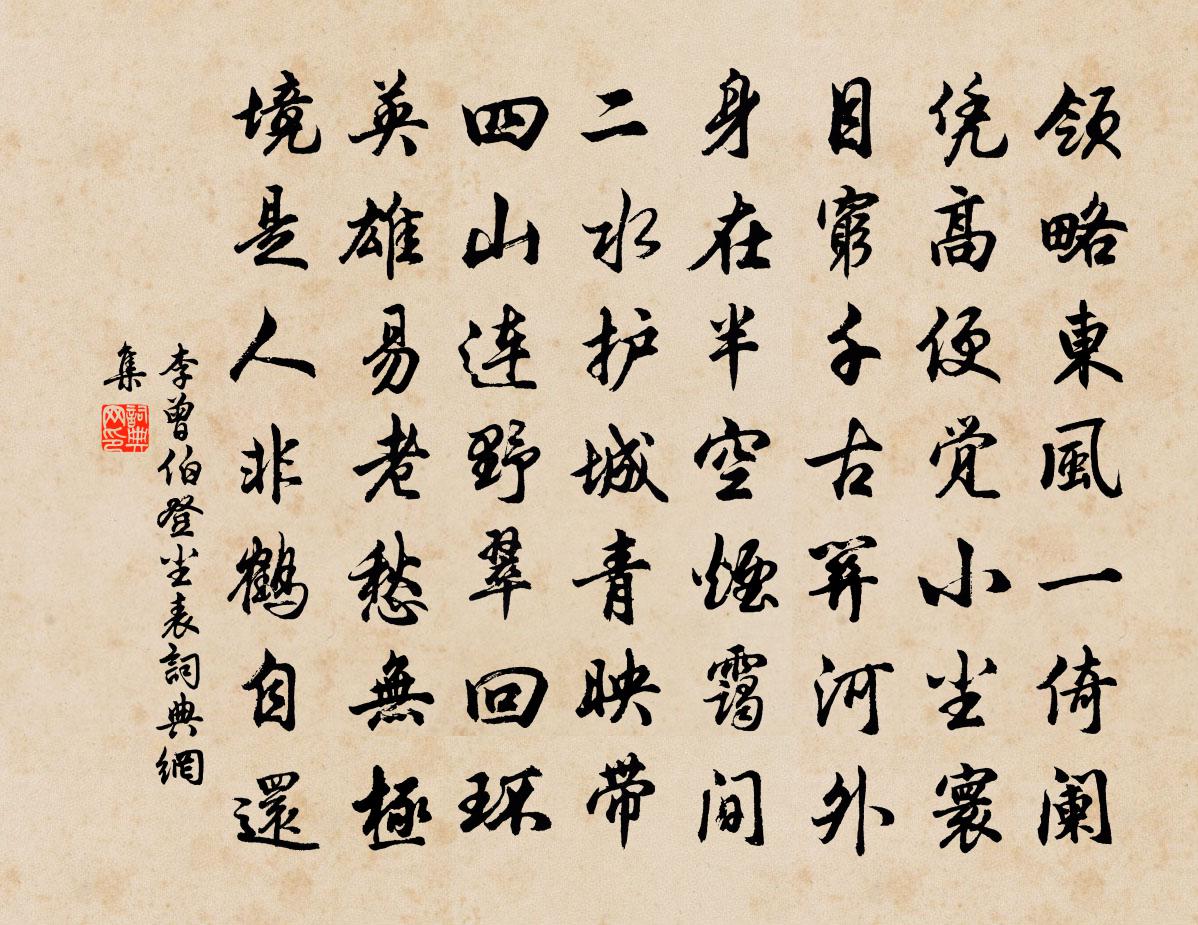 領略東風一倚阑
凭高便觉小尘寰
目窮千古关河外
身在半空煙霭间
二水护城青映带
四山连野翠回环
英雄易老愁無極
境是人非鹤自還
李曾伯登尘表詞典網
集
詞典网印